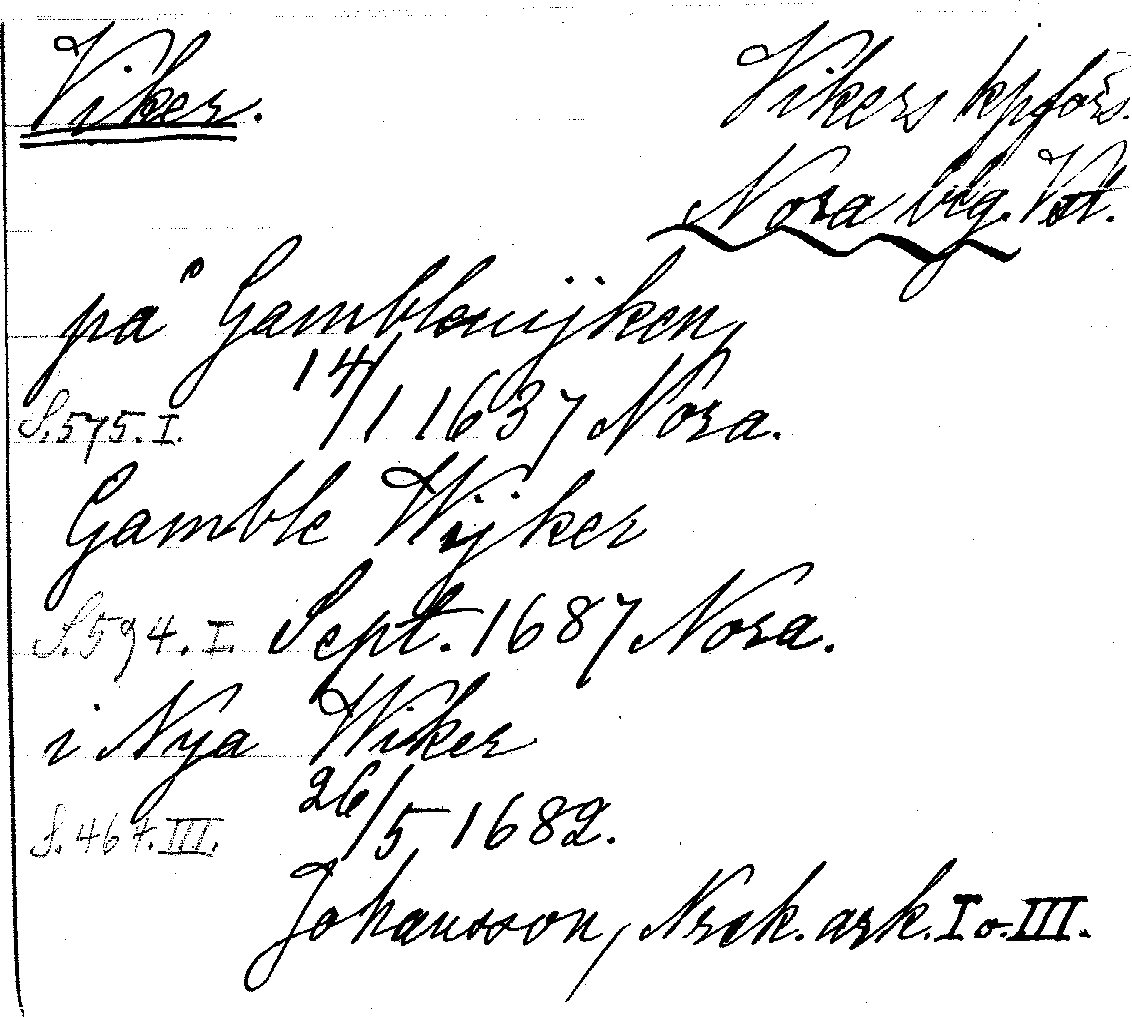 Viker. Vikers kpförs.
Nora brg. Vstt.
på Gamblewijken
S. 575. I. 14/1 1637 Nora.
Gamble Wijker
S. 594. I. Sept. 1687 Nora.
i Nya Wiker
S. 467. III. 26/5 1682.
Johansson, Nrck. ark. I o. III.